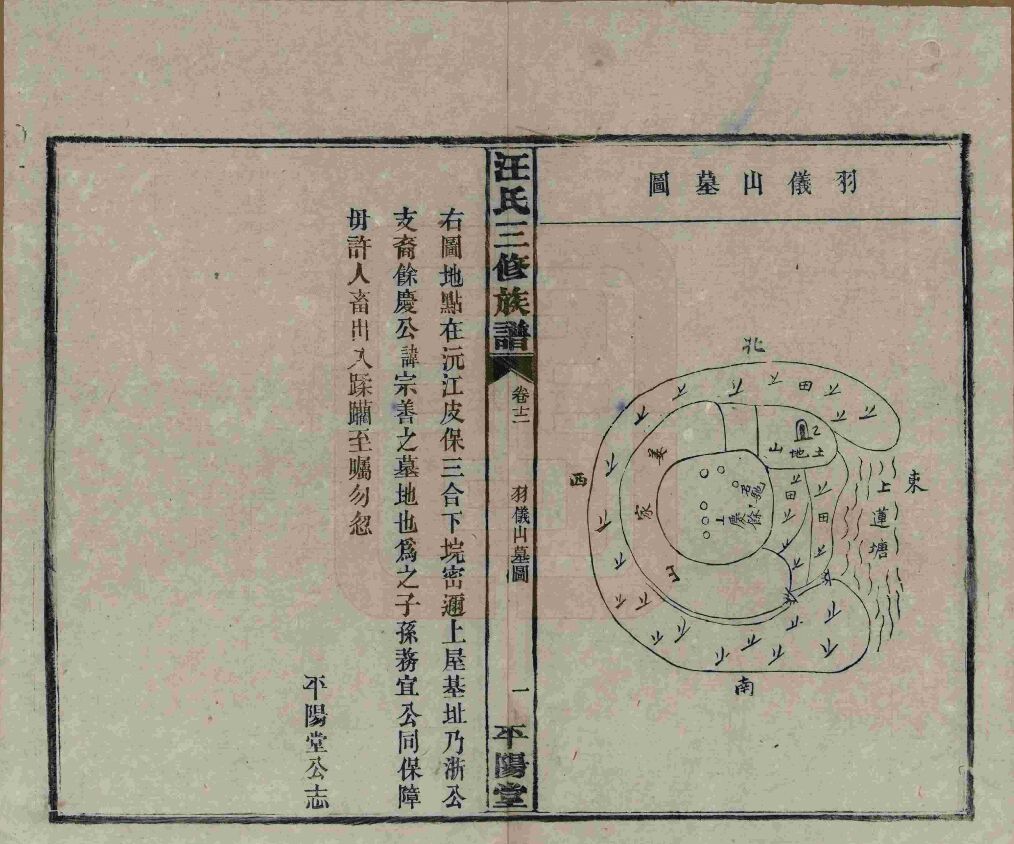 羽儀山墓圖
北
東
西
南
田
土地
山
上蓮塘
田
田
姜家
餘慶
汪氏三修族譜
卷十二
羽儀山墓圖
一
平陽堂
右圖地點在沅江皮保三合下垸密邇上屋基址乃浙公
支裔餘慶公諱宗善之墓地也爲之子孫務宜公同保障
毋許人畜出入蹂躪至囑勿忽
平陽堂公志